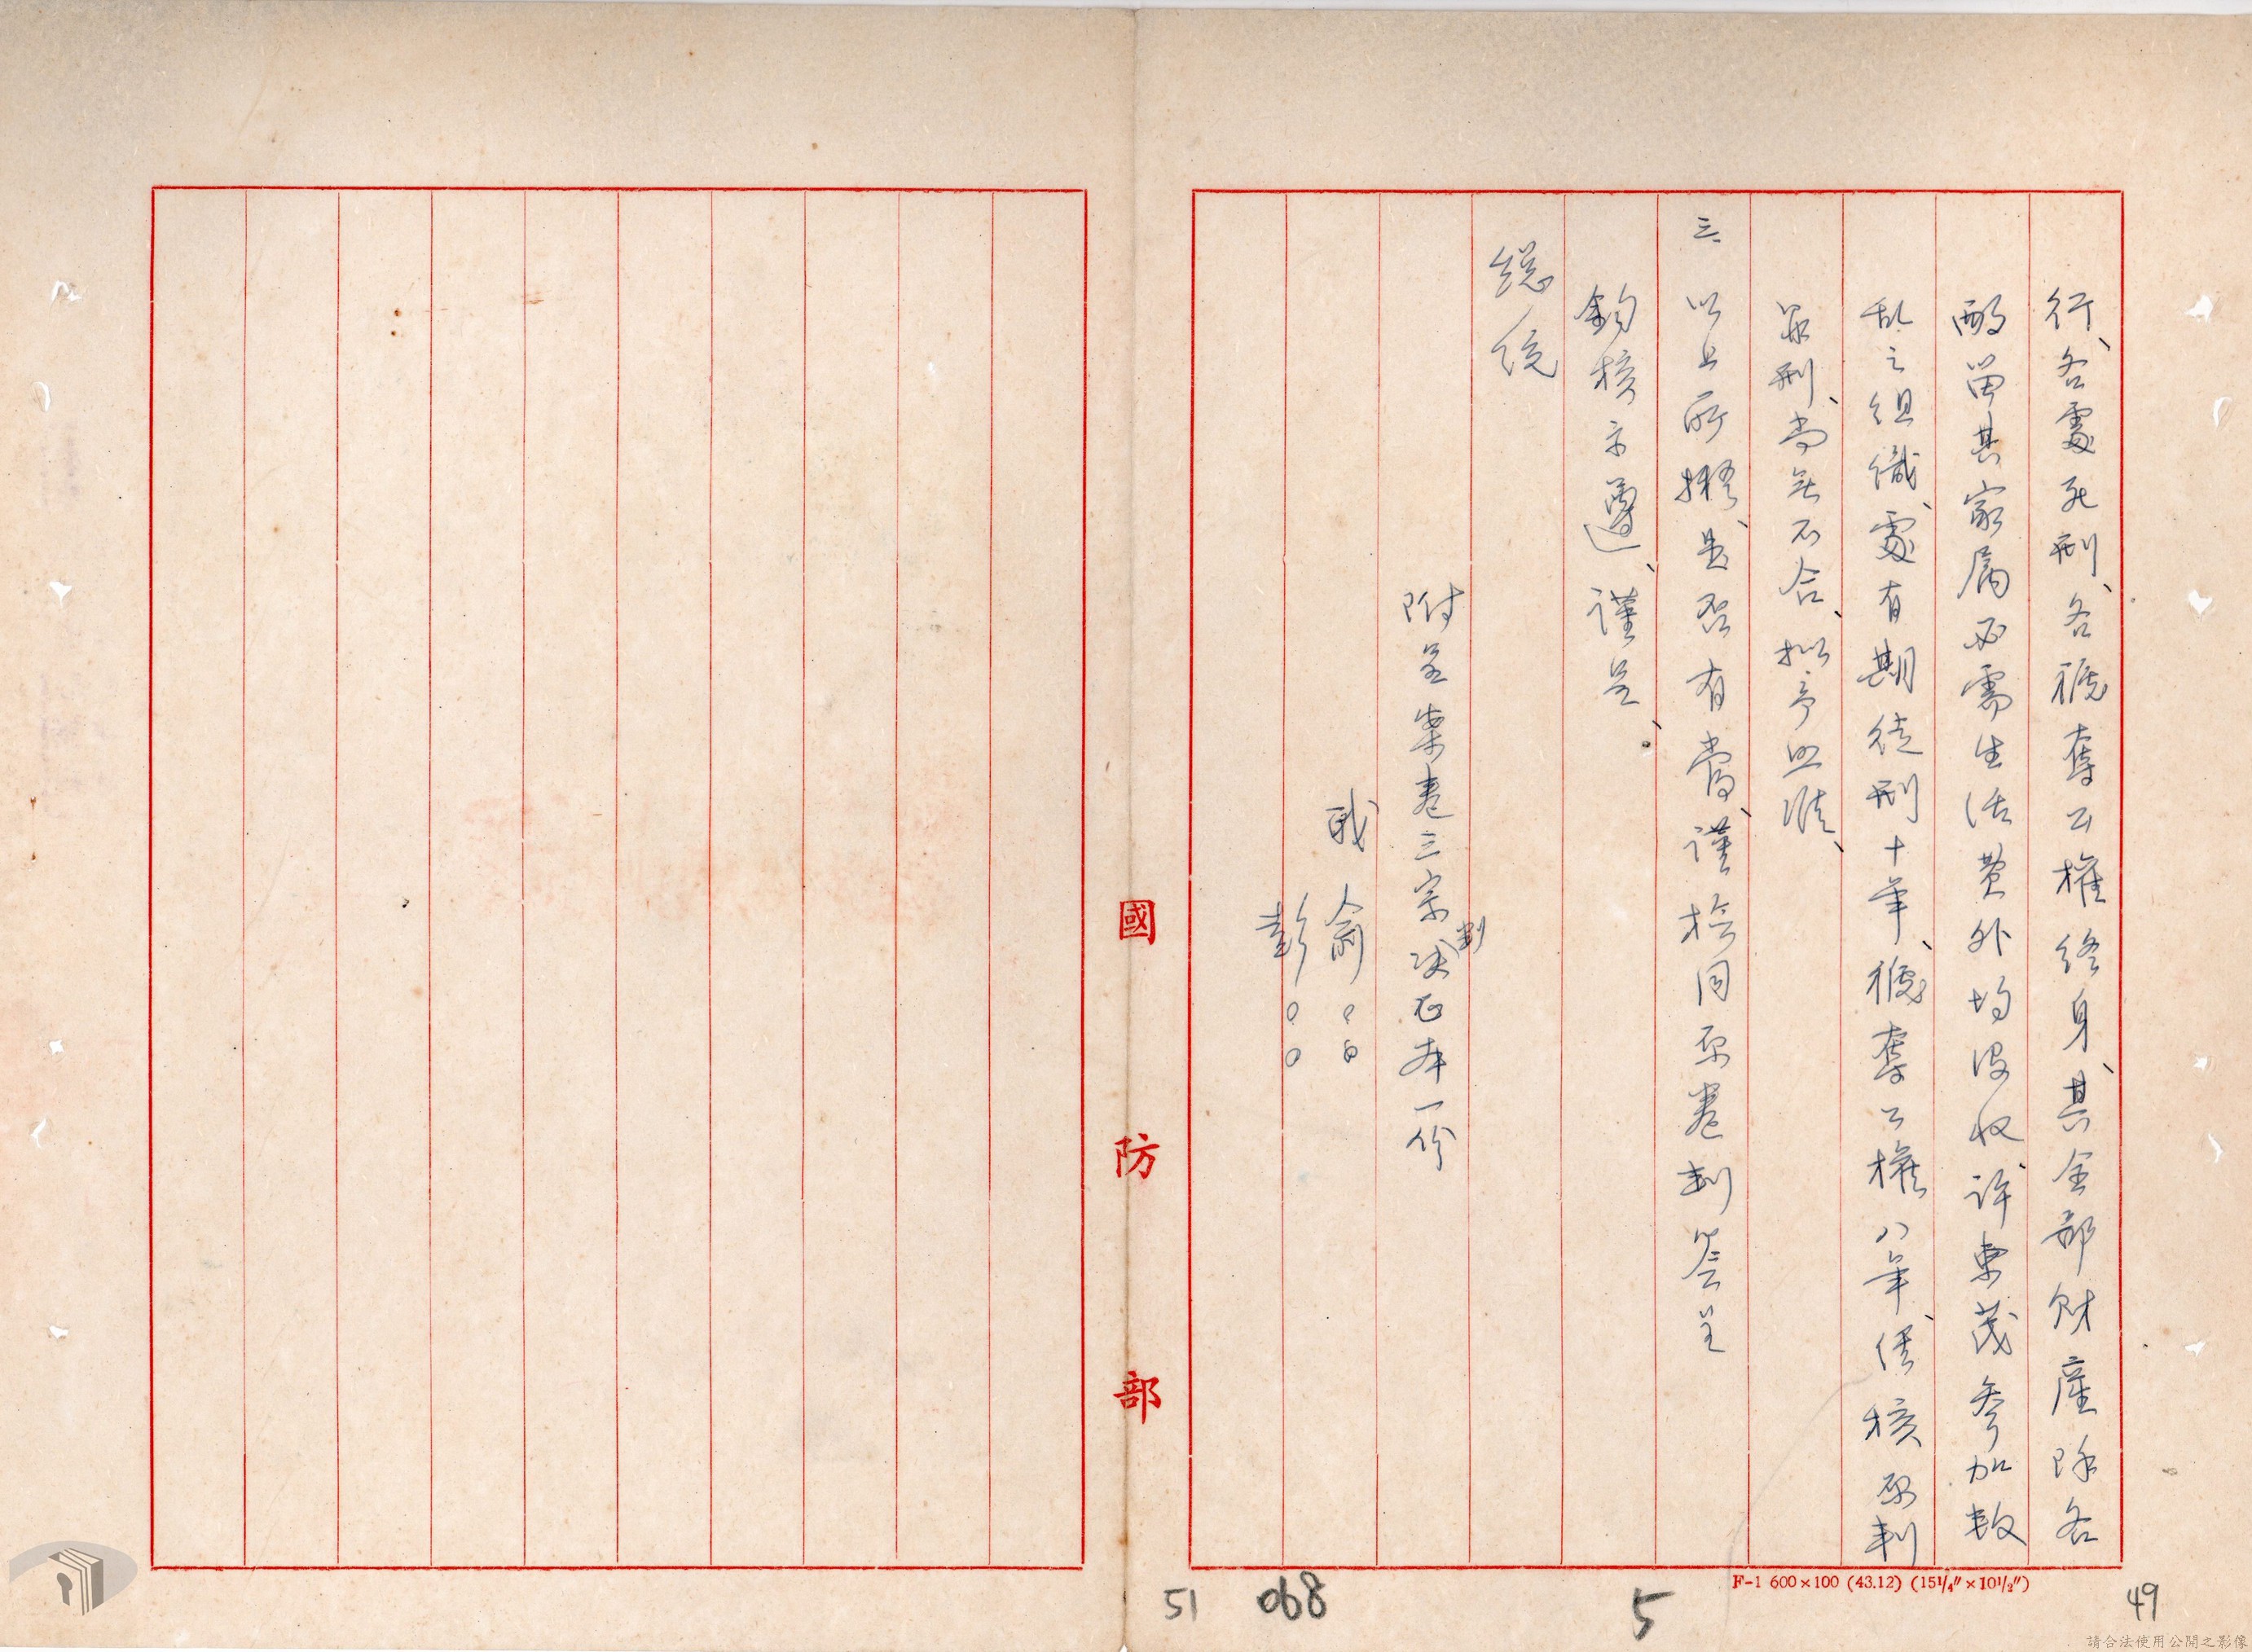 行、各處死刑、各褫奪公權終身、其全部財產除各
酌留其家屬必需生活費外均沒收、許東茂參加叛
乱之組織、處有期徒刑十年、褫奪公權八年、經核原判
罪刑、尚無不合、拟予照准、
三、以上所擬、是否有當、謹檢同原卷判簽呈
鈞核示遵、謹呈、
總統
附呈案卷三宗判決正本一份
職俞○○
彭○○
國防部
F-1 600×100 (43.12) (15¼″×10½″)
49
5
068
51
請合法使用公開之影像